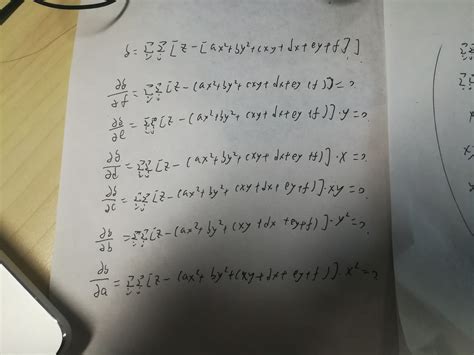 δ = ΣΣ[z - [ax²+by²+cxy+dx+ey+f]]
∂δ/∂f = ΣΣ[z - (ax²+by²+cxy+dx+ey+f)] = 0
∂δ/∂e = ΣΣ[z - (ax²+by²+cxy+dx+ey+f)]·y = 0
∂δ/∂d = ΣΣ[z - (ax²+by²+cxy+dx+ey+f)]·x = 0
∂δ/∂c = ΣΣ[z - (ax²+by²+cxy+dx+ey+f)]·xy = 0
∂δ/∂b = ΣΣ[z - (ax²+by²+cxy+dx+ey+f)]·y² = 0
∂δ/∂a = ΣΣ[z - (ax²+by²+cxy+dx+ey+f)]·x² = 0